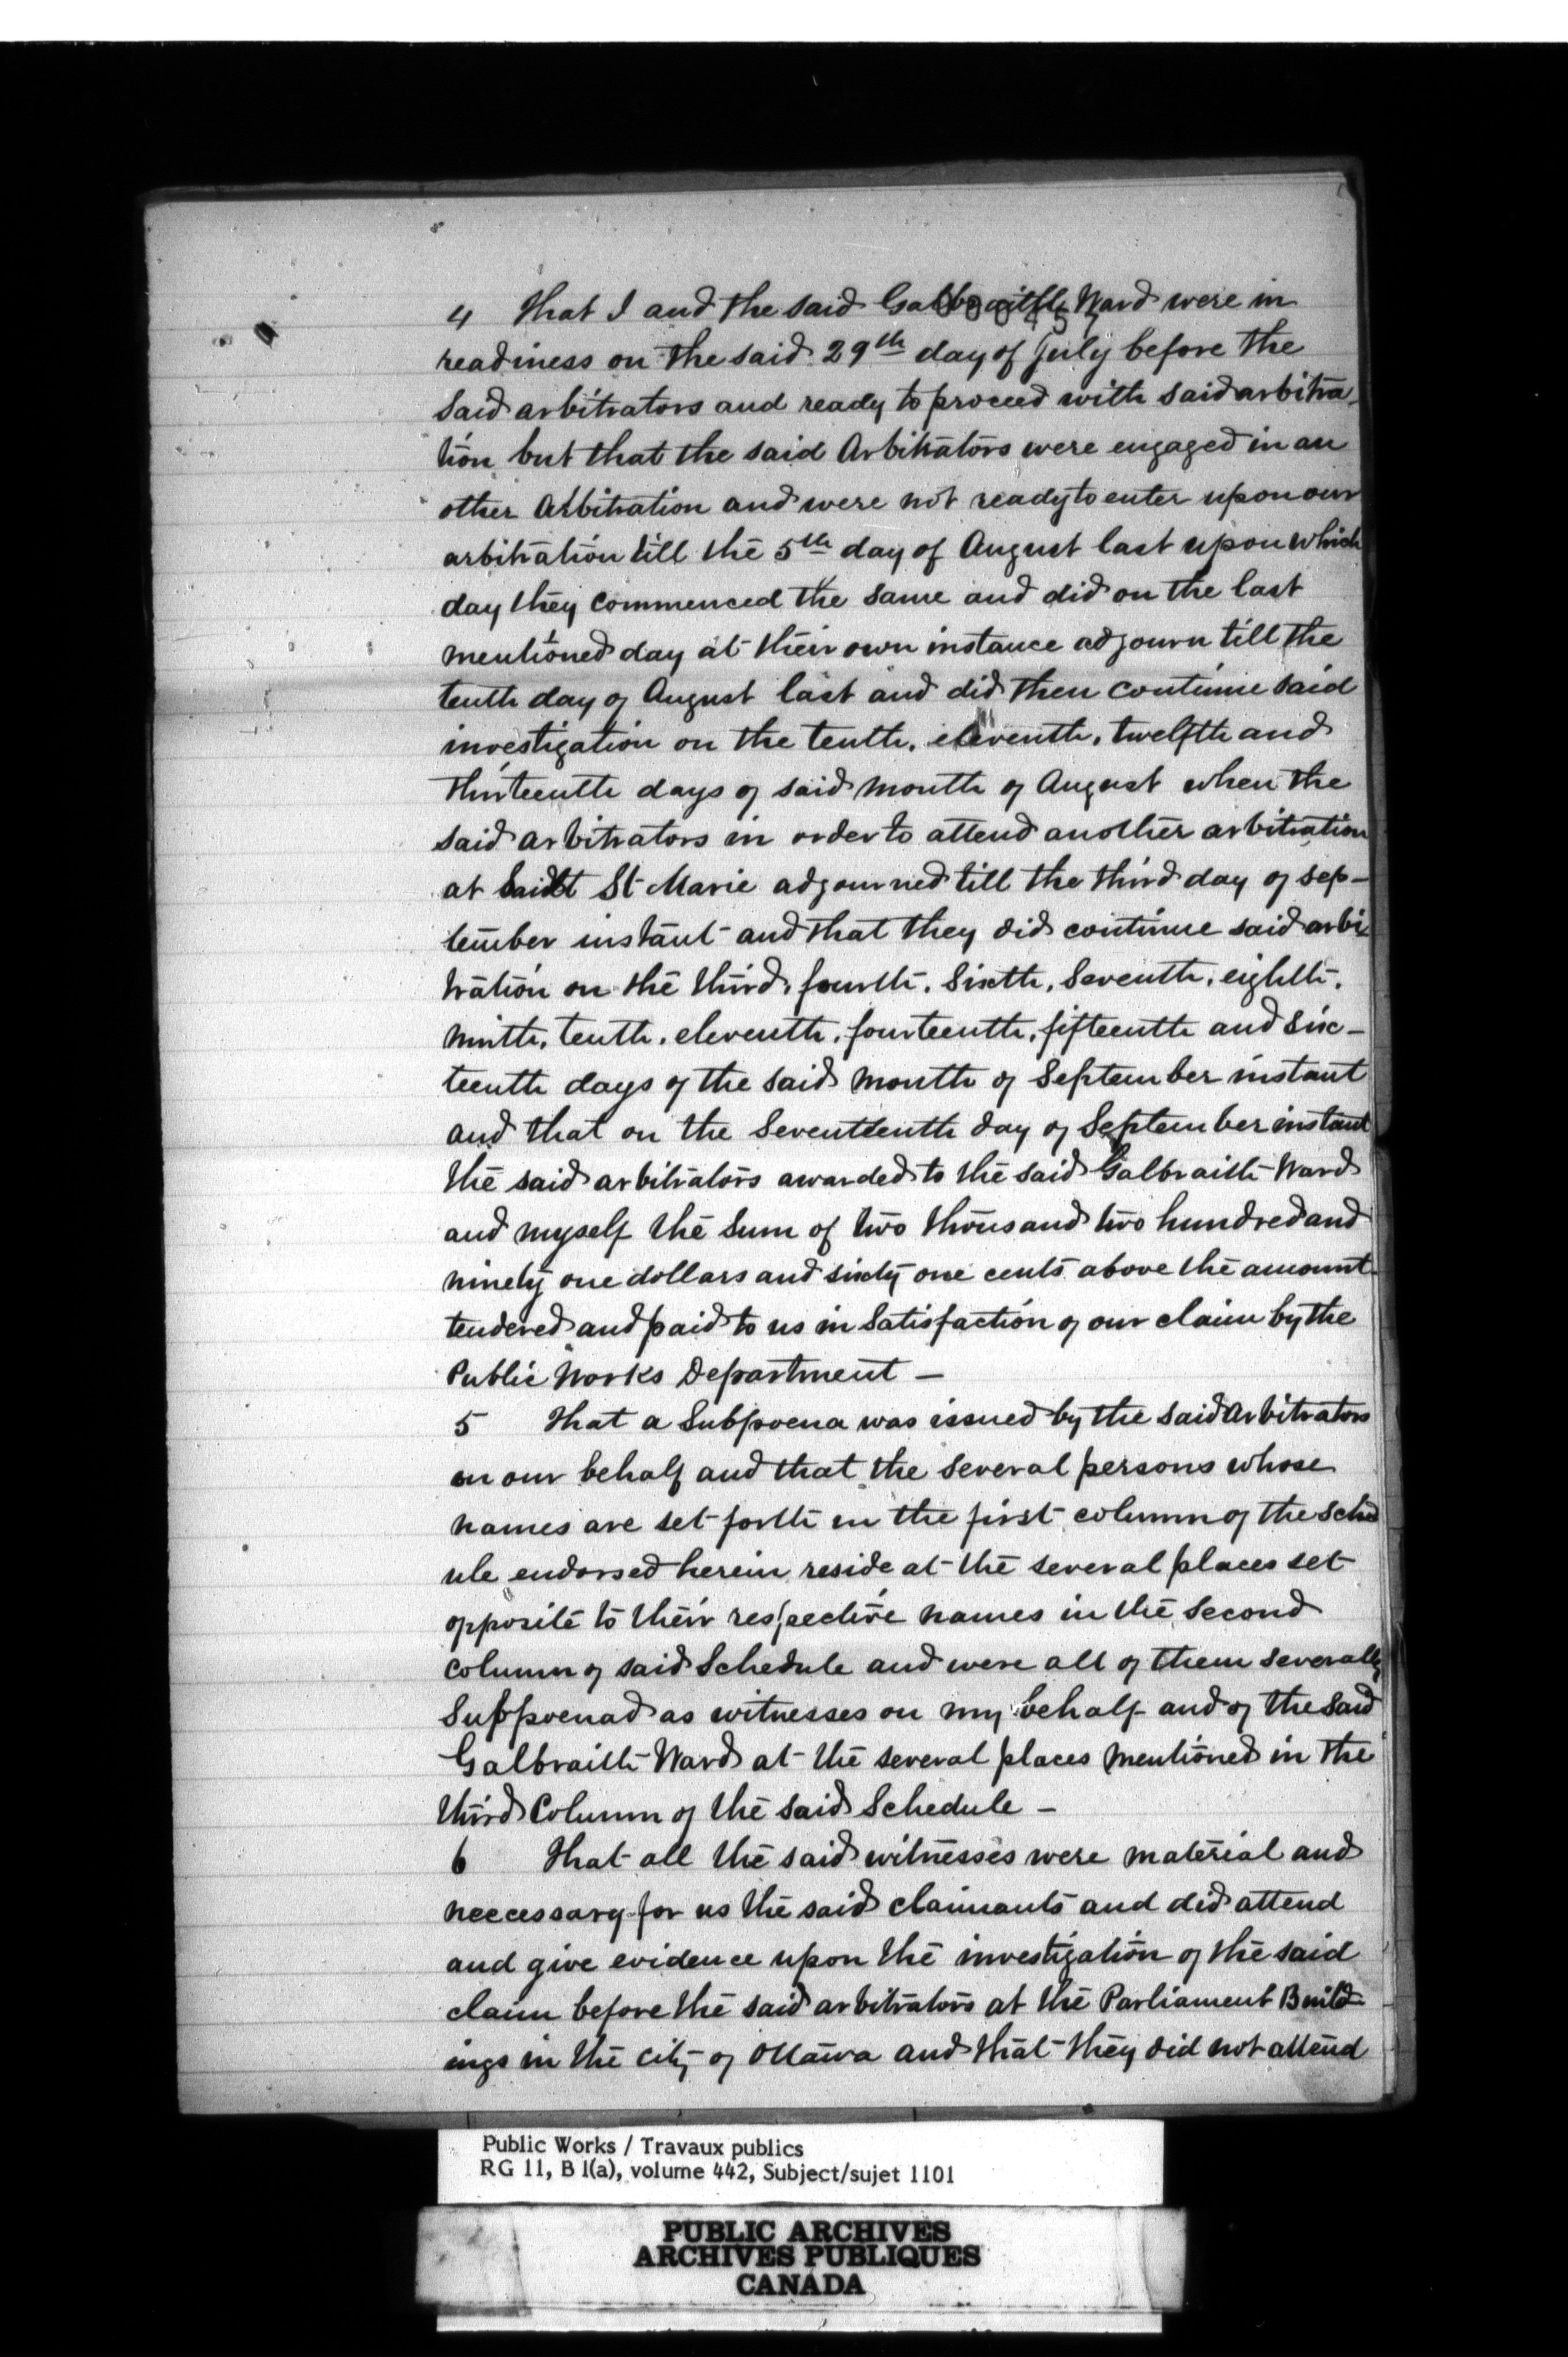 4 That I and the said Galbraith Ward were in
readiness on the said 29th day of July before the
said arbitrators and ready to proceed with said arbitra-
tion but that the said Arbitrators were engaged in an
other Arbitration and were not ready to enter upon our
arbitration till the 5th day of August last upon which
day they commenced the same and did on the last
mentioned day at their own instance adjourn till the
tenth day of August last and did then continue said
investigation on the tenth, eleventh, twelfth and
thirteenth days of said month of August when the
said arbitrators in order to attend another arbitration
at St Marie adjourned till the third day of Sep-
tember instant and that they did continue said arbi
tration on the third, fourth, sixth, seventh, eighth,
ninth, tenth, eleventh, fourteenth, fifteenth and six-
teenth days of the said month of September instant
and that on the Seventeenth day of September instant
the said arbitrators awarded to the said Galbraith Ward
and myself the sum of two thousand two hundred and
ninety one dollars and sixty one cents above the amount
tendered and paid to us in satisfaction of our claim by the
Public Works Department —
5 That a Subpoena was issued by the said Arbitrators
on our behalf and that the several persons whose
names are set forth in the first column of the Sched
ule endorsed herein reside at the several places set
opposite to their respective names in the second
column of said Schedule and were all of them severally
Suppoenad as witnesses on my behalf and of the said
Galbraith Ward at the several places mentioned in the
third Column of the said Schedule —
6 That all the said witnesses were material and
neccessary for us the said claimants and did attend
and give evidence upon the investigation of the said
claim before the said arbitrators at the Parliament Build
ings in the city of Ottawa and that they did not attend
Public Works / Travaux publics
RG 11, B 1(a), volume 442, Subject/sujet 1101
PUBLIC ARCHIVES
ARCHIVES PUBLIQUES
CANADA